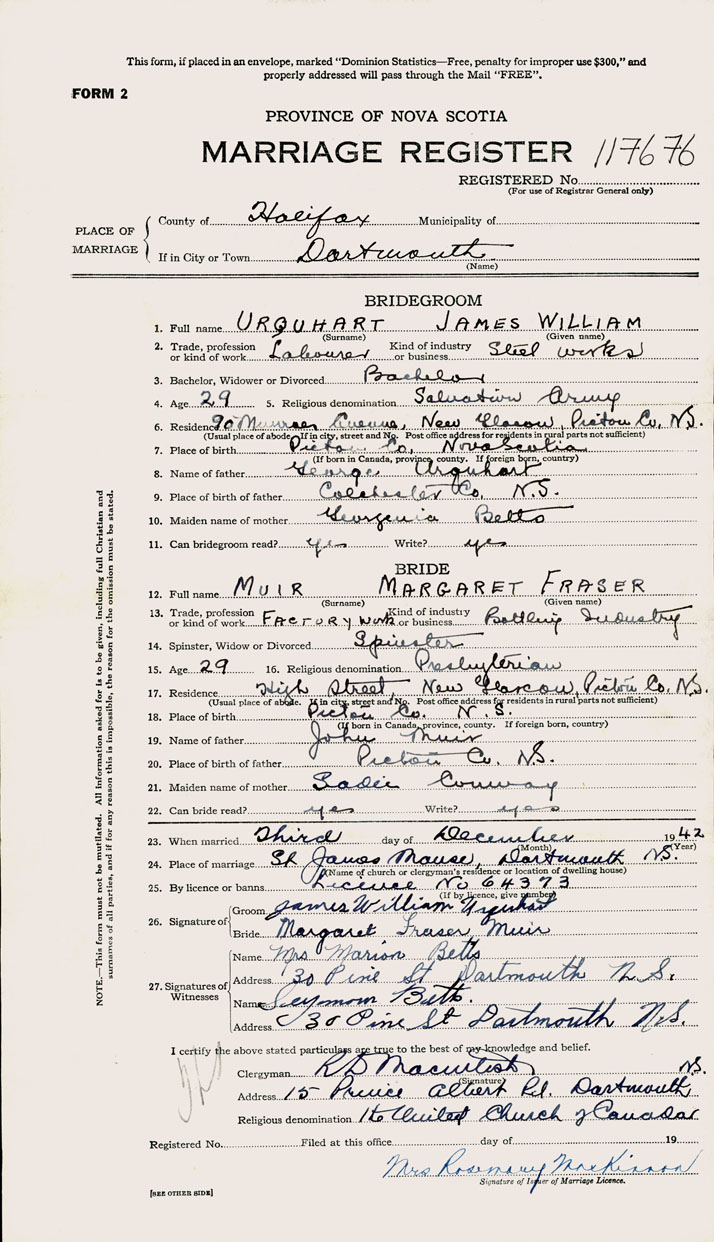 This form, if placed in an envelope, marked “Dominion Statistics—Free, penalty for improper use $300,” and
properly addressed will pass through the Mail “FREE”.
FORM 2
PROVINCE OF NOVA SCOTIA
MARRIAGE REGISTER 117676
REGISTERED No.
(For use of Registrar General only)
PLACE OF MARRIAGE
County of Halifax Municipality of
If in City or Town Dartmouth
(Name)
BRIDEGROOM
1. Full name URQUHART JAMES WILLIAM
(Surname) (Given name)
2. Trade, profession or kind of work Labourer Kind of industry or business Steel works
3. Bachelor, Widower or Divorced Bachelor
4. Age 29 5. Religious denomination Salvation Army
6. Residence 90 Munroe Avenue, New Glasgow, Pictou Co, N.S.
(Usual place of abode. If in city, street and No. Post office address for residents in rural parts not sufficient)
7. Place of birth Pictou Co, Nova Scotia
(If born in Canada, province, county. If foreign born, country)
8. Name of father George Urquhart
9. Place of birth of father Colchester Co, N.S.
10. Maiden name of mother Georgenia Betts
11. Can bridegroom read? yes Write? yes
BRIDE
12. Full name MUIR MARGARET FRASER
(Surname) (Given name)
13. Trade, profession or kind of work FACTORY WORK Kind of industry or business Bottling Industry
14. Spinster, Widow or Divorced Spinster
15. Age 29 16. Religious denomination Presbyterian
17. Residence High Street, New Glasgow, Pictou Co. N.S.
(Usual place of abode. If in city, street and No. Post office address for residents in rural parts not sufficient)
18. Place of birth Pictou Co. N.S.
(If born in Canada, province, county. If foreign born, country)
19. Name of father John Muir
20. Place of birth of father Pictou Co. N.S.
21. Maiden name of mother Sadie Conway
22. Can bride read? yes Write? yes
23. When married Third day of December 1942
(Month) (Year)
24. Place of marriage St James Manse, Dartmouth N.S.
(Name of church or clergyman's residence or location of dwelling house)
25. By licence or banns Licence No 64373
(If by licence, give number)
26. Signature of
Groom James William Urquhart
Bride Margaret Fraser Muir
27. Signatures of Witnesses
Name Mrs Marion Betts
Address 30 Pine St Dartmouth N.S.
Name Seymour Betts.
Address 30 Pine St Dartmouth N.S.
I certify the above stated particulars are true to the best of my knowledge and belief.
Clergyman R D Macintosh
(Signature)
Address 15 Prince Albert Rd. Dartmouth, N.S.
Religious denomination The United Church of Canada
Registered No. Filed at this office day of 19
Mrs Rosemary MacKinnon
Signature of Issuer of Marriage Licence.
[SEE OTHER SIDE]
NOTE.—This form must not be mutilated. All information asked for is to be given, including full Christian and
surnames of all parties, and if for any reason this is impossible, the reason for the omission must be stated.